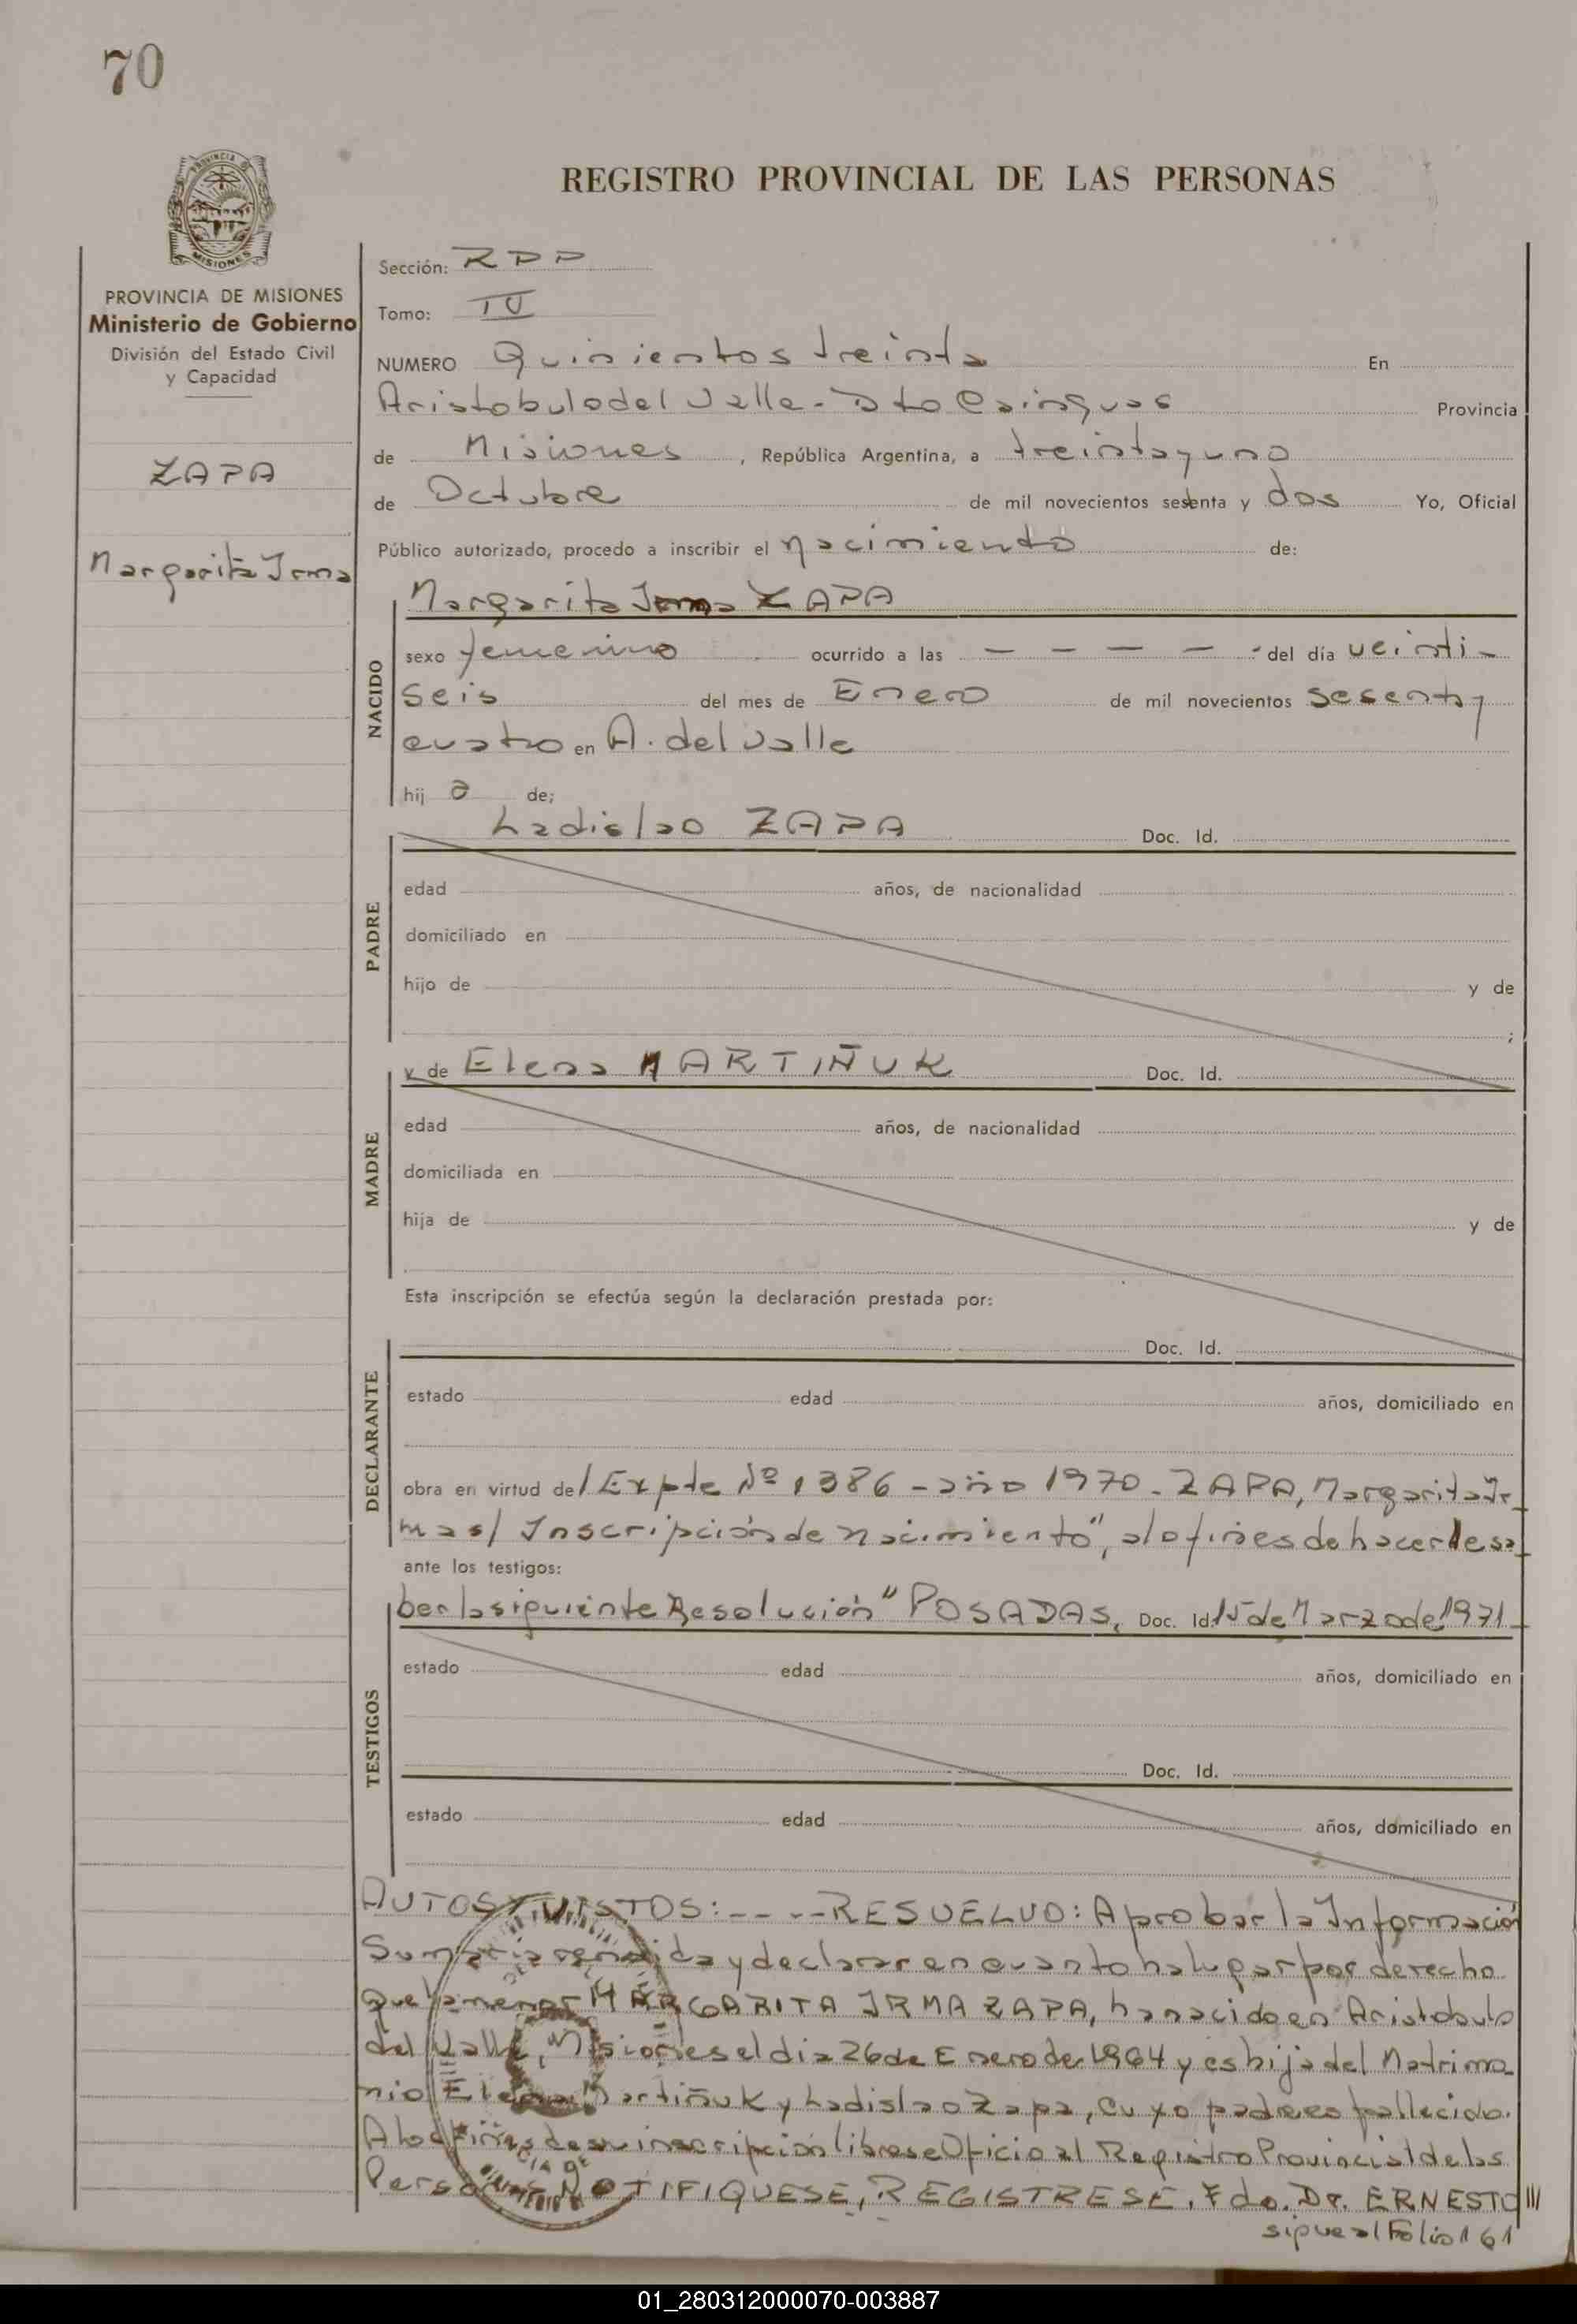 70
PROVINCIA DE
MISIONES
REGISTRO PROVINCIAL DE LAS PERSONAS
PROVINCIA DE MISIONES
Ministerio de Gobierno
División del Estado Civil
y Capacidad
ZAPA
Margarita Irma
Sección: RDP
Tomo: IV
NUMERO Quinientos treinta En
Aristobulo del Valle - Dto Cainguas Provincia
de Misiones, República Argentina, a treinta y uno
de Octubre de mil novecientos setenta y dos Yo, Oficial
Público autorizado, procedo a inscribir el nacimiento de:
NACIDO
Margarita Irma ZAPA
sexo femenino ocurrido a las — — — — del día veinti-
seis del mes de Enero de mil novecientos sesenta y
cuatro en A. del Valle
hij a de;
PADRE
Ladislao ZAPA Doc. Id.
edad años, de nacionalidad
domiciliado en
hijo de y de
;
MADRE
y de Elena MARTIÑUK Doc. Id.
edad años, de nacionalidad
domiciliada en
hija de y de
Esta inscripción se efectúa según la declaración prestada por:
DECLARANTE
Doc. Id.
estado edad años, domiciliado en
obra en virtud del Expte Nº 1386 - año 1970 - ZAPA, Margarita Ir-
ma s/ Inscripción de nacimiento", a lo fines de hacerle sa-
ante los testigos:
TESTIGOS
ber la siguiente Resolución "POSADAS, Doc. Id. 15 de Marzo de 1971-
estado edad años, domiciliado en
Doc. Id.
estado edad años, domiciliado en
AUTOS Y VISTOS: - - - - RESUELVO: Aprobar la Información
Sumaria rendida y declarar en cuanto ha lugar por derecho
que la menor MARGARITA IRMA ZAPA, ha nacido en Aristobulo
del Valle, Misiones el dia 26 de Enero de 1964 y es hija del Matrimo-
nio Elena Martiñuk y Ladislao Zapa, cuyo padre es fallecido.
A los fines de su inscripción librese Oficio al Registro Provincial de las
Personas NOTIFIQUESE, REGISTRESE. Fdo. Dr. ERNESTO ///
sigue al Folio 161
01_280312000070-003887